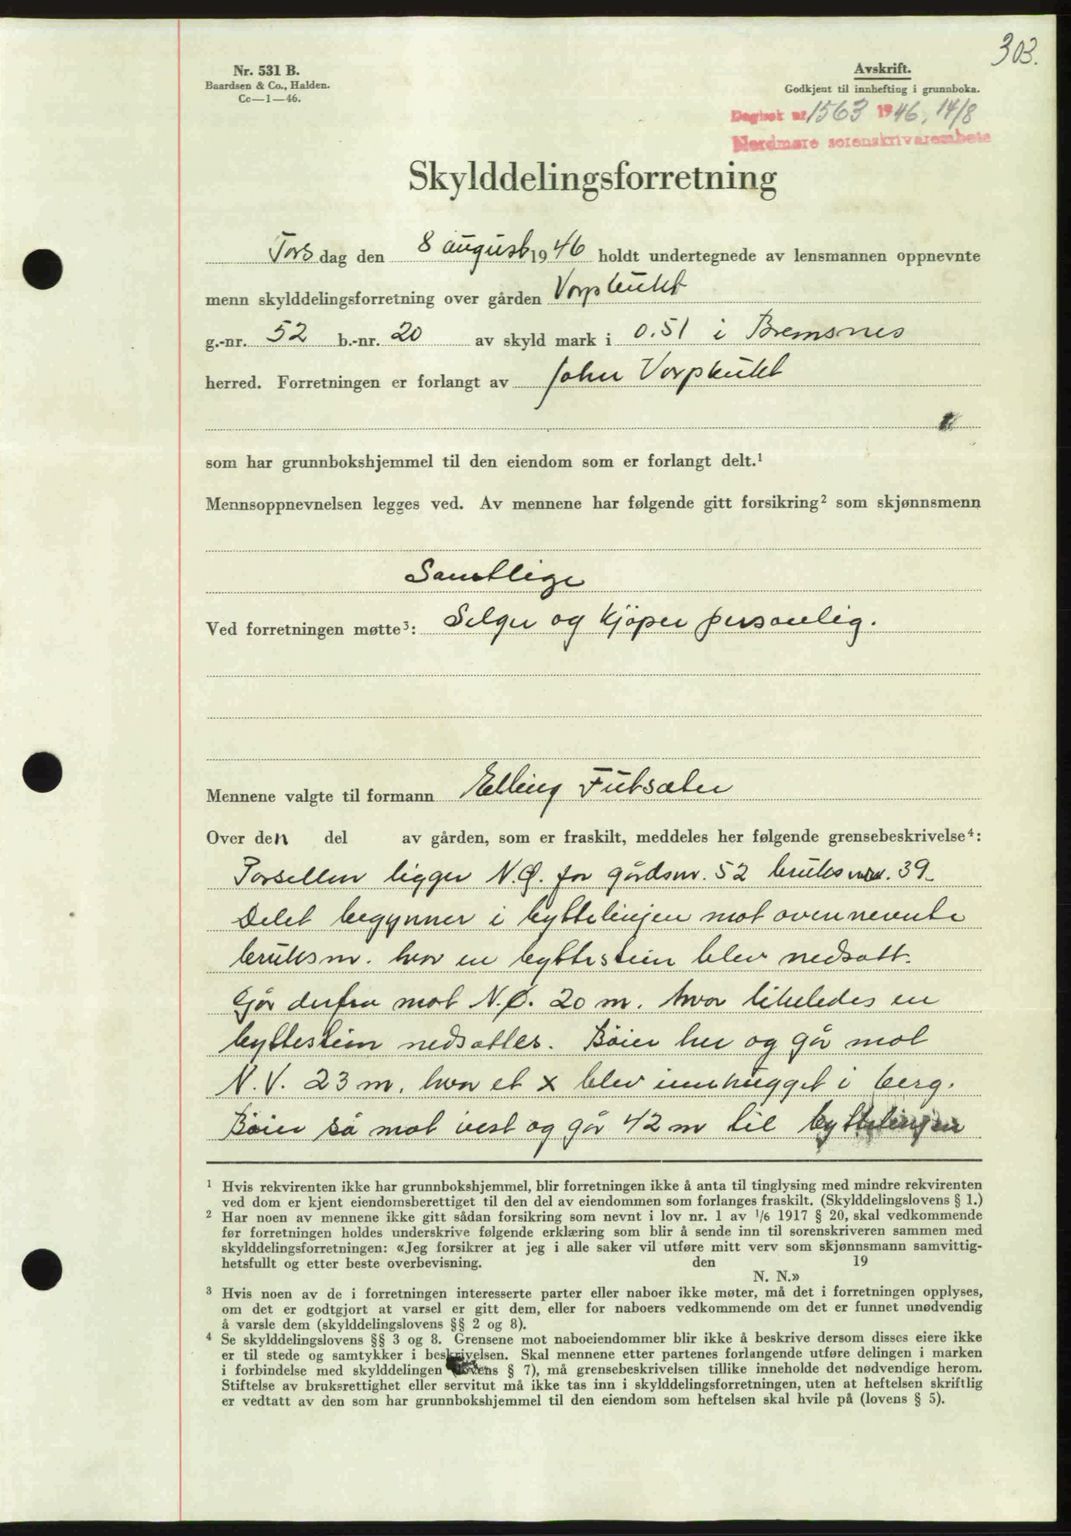 303.
Nr. 531 B.
Baardsen & Co., Halden.
Cc—1—46.
Avskrift.
Godkjent til innhefting i grunnboka.
Dagbok nr 1563 1946, 14/8
Nordmøre sorenskriverembete
Skylddelingsforretning
Torsdag den 8 august 1946 holdt undertegnede av lensmannen oppnevnte
menn skylddelingsforretning over gården Vorpbukt
g.-nr. 52 b.-nr. 20 av skyld mark i 0.51 i Bremsnes
herred. Forretningen er forlangt av John Vorpbukt
som har grunnbokshjemmel til den eiendom som er forlangt delt.¹
Mennsoppnevnelsen legges ved. Av mennene har følgende gitt forsikring² som skjønnsmenn
Samtlige
Ved forretningen møtte³: Selger og kjøper personlig.
Mennene valgte til formann Elling Futsæter
Over den del av gården, som er fraskilt, meddeles her følgende grensebeskrivelse⁴:
Parsellen ligger N.Ø. for gårdsnr. 52 bruksnr. 39.
Delet begynner i byttelinjen mot ovennevnte
bruksnr. hvor en byttestein blev nedsatt.
Går derfra mot N.Ø. 20 m. hvor likeledes en
byttestein nedsattes. Bøier her og går mot
N.V. 23 m. hvor et x blev innhugget i berg.
Bøier så mot vest og går 42 m til byttelinjen
¹ Hvis rekvirenten ikke har grunnbokshjemmel, blir forretningen ikke å anta til tinglysing med mindre rekvirenten
ved dom er kjent eiendomsberettiget til den del av eiendommen som forlanges fraskilt. (Skylddelingslovens § 1.)
² Har noen av mennene ikke gitt sådan forsikring som nevnt i lov nr. 1 av 1/6 1917 § 20, skal vedkommende
før forretningen holdes underskrive følgende erklæring som blir å sende inn til sorenskriveren sammen med
skylddelingsforretningen: «Jeg forsikrer at jeg i alle saker vil utføre mitt verv som skjønnsmann samvittig-
hetsfullt og etter beste overbevisning. den 19
N. N.»
³ Hvis noen av de i forretningen interesserte parter eller naboer ikke møter, må det i forretningen opplyses,
om det er godtgjort at varsel er gitt dem, eller for naboers vedkommende om det er funnet unødvendig
å varsle dem (skylddelingslovens §§ 2 og 8).
⁴ Se skylddelingslovens §§ 3 og 8. Grensene mot naboeiendommer blir ikke å beskrive dersom disses eiere ikke
er til stede og samtykker i beskrivelsen. Skal mennene etter partenes forlangende utføre delingen i marken
i forbindelse med skylddelingen (lovens § 7), må grensebeskrivelsen tillike inneholde det nødvendige herom.
Stiftelse av bruksrettighet eller servitut må ikke tas inn i skylddelingsforretningen, uten at heftelsen skriftlig
er vedtatt av den som har grunnbokshjemmel til den eiendom som heftelsen skal hvile på (lovens § 5).